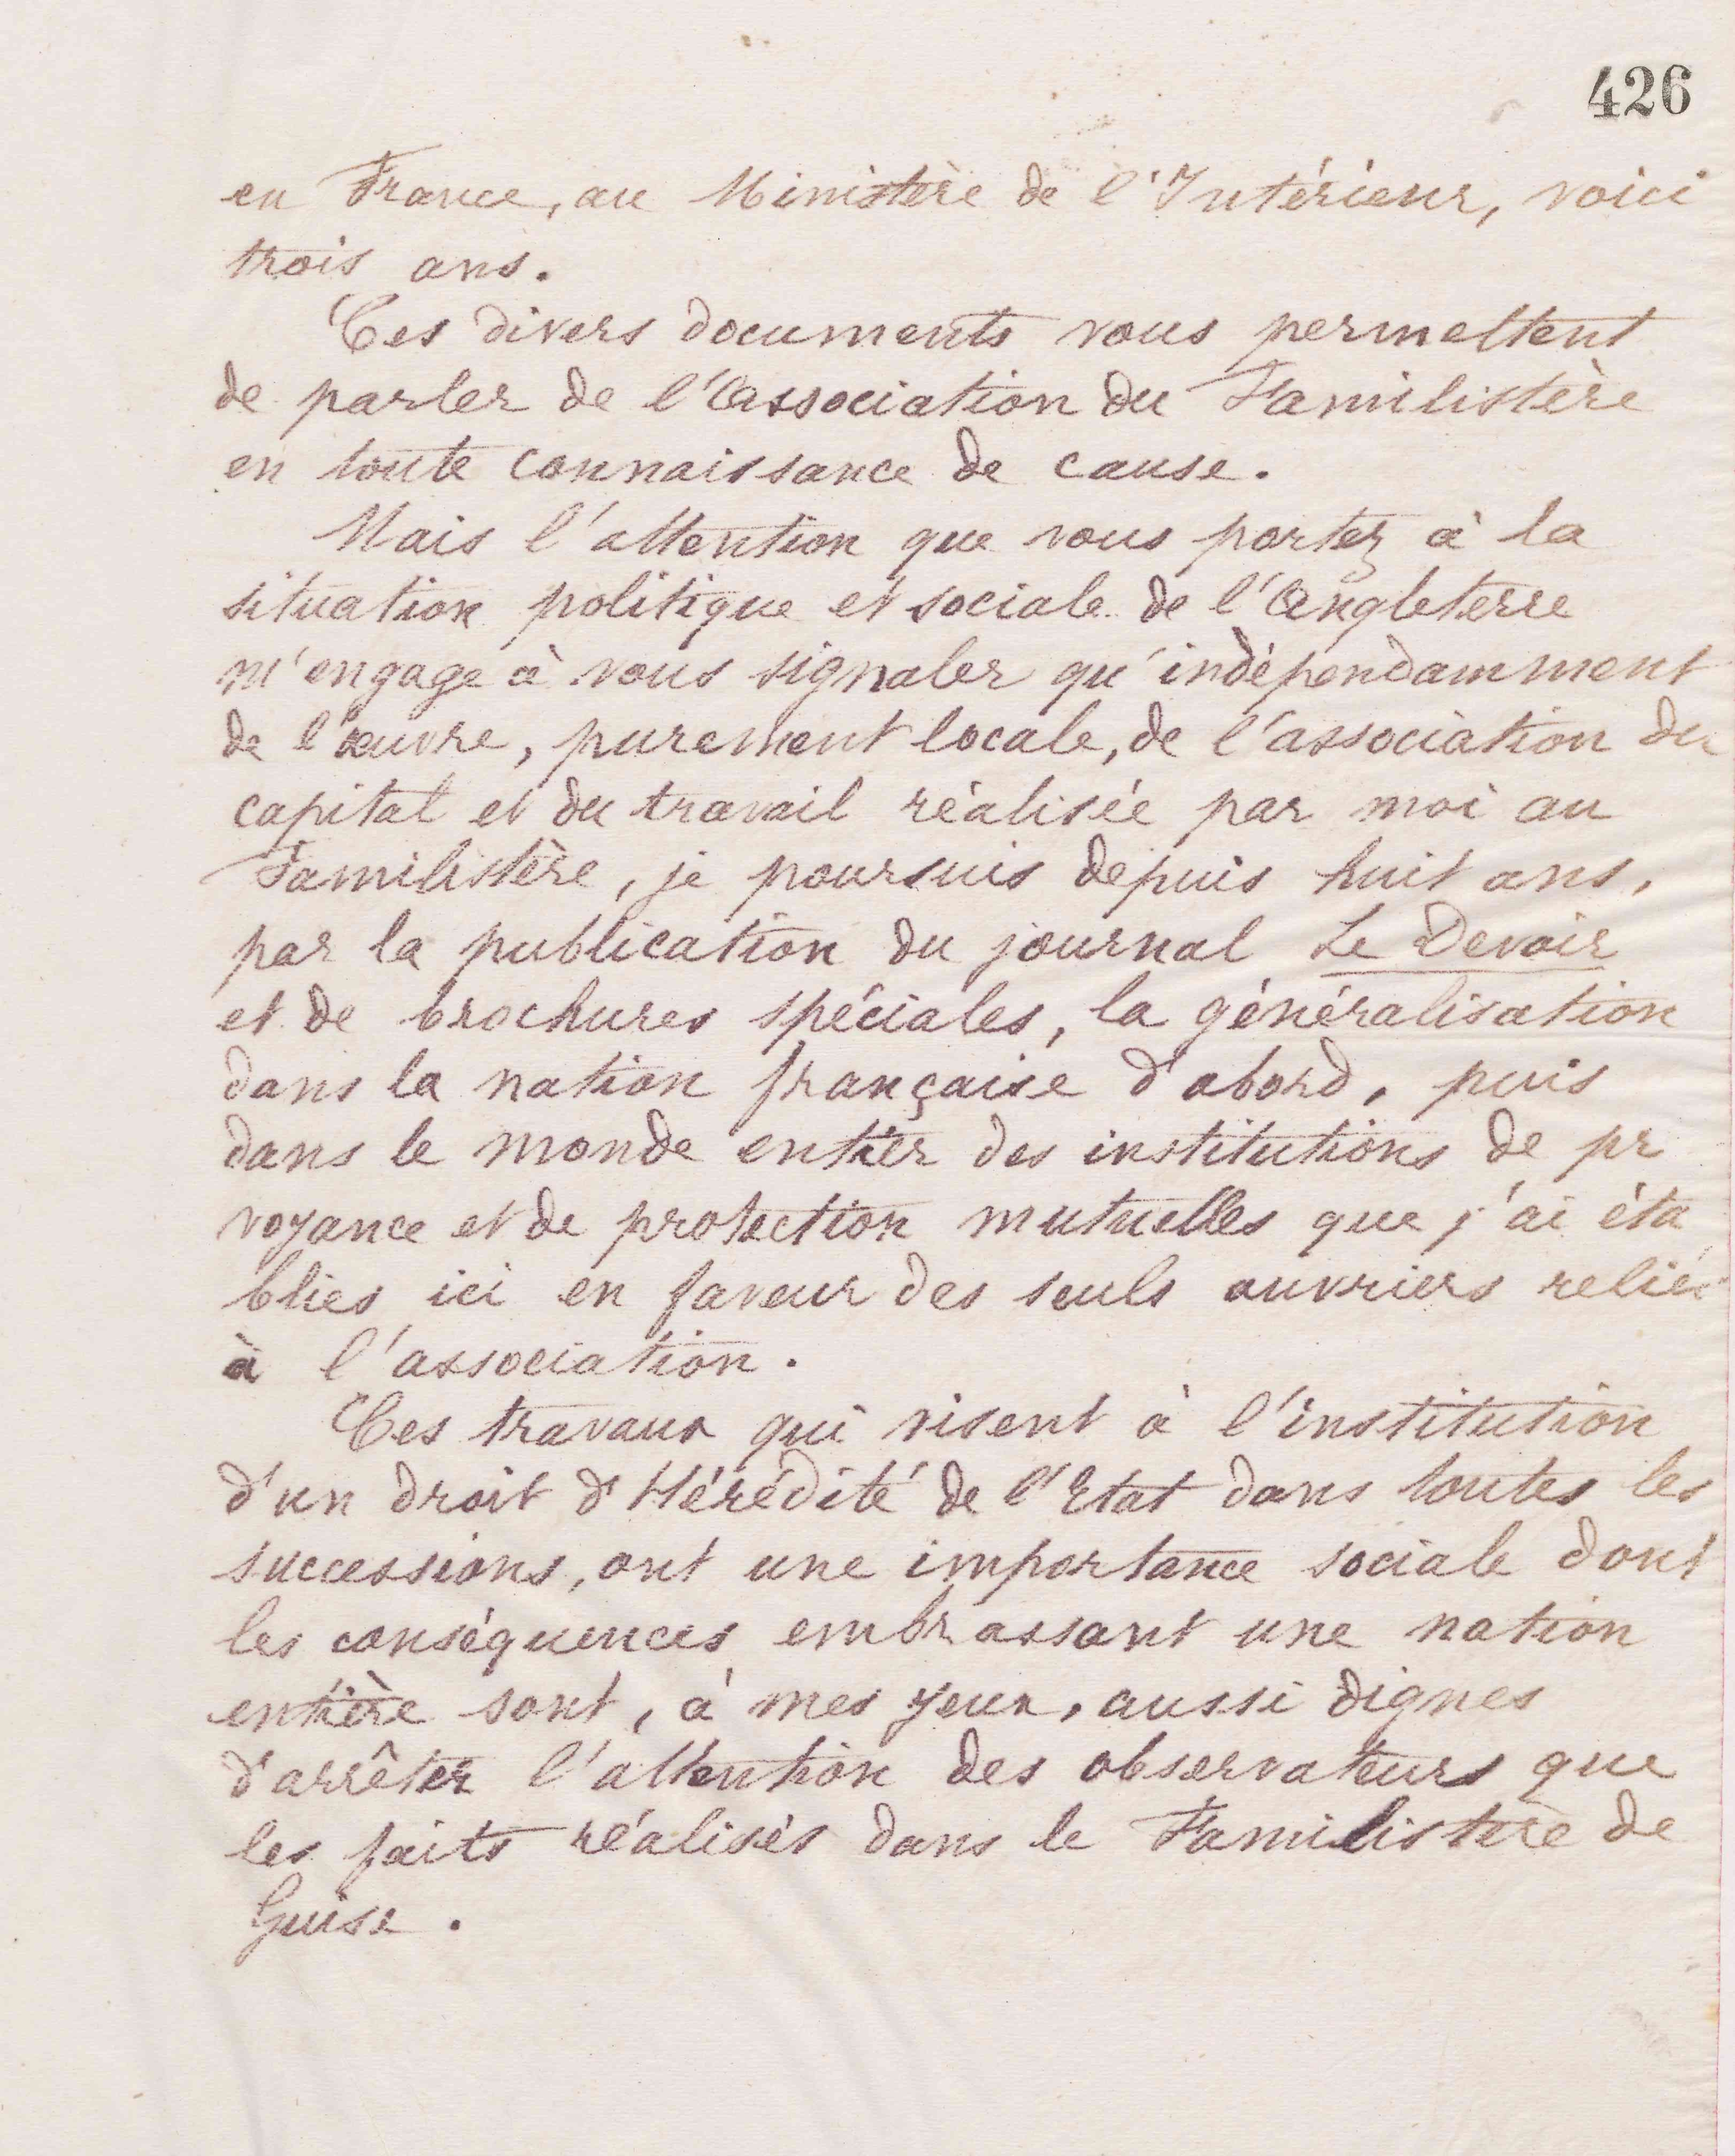 426
en France, au Ministère de l'Intérieur, voici
trois ans.
Ces divers documents vous permettent
de parler de l'Association du Familistère
en toute connaissance de cause.
Mais l'attention que vous portez à la
situation politique et sociale de l'Angleterre
m'engage à vous signaler qu'indépendamment
de l'œuvre, purement locale, de l'association du
capital et du travail réalisée par moi au
Familistère, je poursuis depuis huit ans,
par la publication du journal Le Devoir
et de brochures spéciales, la généralisation
dans la nation française d'abord, puis
dans le monde entier des institutions de pr
voyance et de protection mutuelles que j'ai éta
blies ici en faveur des seuls ouvriers reliés
à l'association.
Ces travaux qui visent à l'institution
d'un droit d'Hérédité de l'Etat dans toutes les
successions, ont une importance sociale dont
les conséquences embrassant une nation
entière sont, à mes yeux, aussi dignes
d'arrêter l'attention des observateurs que
les faits réalisés dans le Familistère de
Guise.